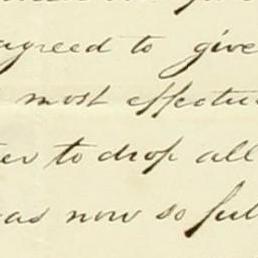 agreed to give
most effectu
ter to drop all
as now so ful